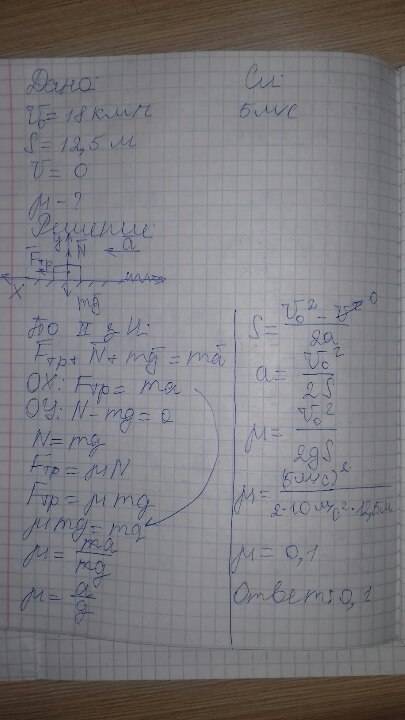 Дано:
V₀ = 18 км/ч
S = 12,5 м
V = 0
μ - ?
Си:
5 м/с
Решение
y N̅ a̅
F̅тр
X
mg̅
По II з. Н:
F̅тр + N̅ + mg̅ = ma̅
OX: Fтр = ma
OY: N - mg = 0
N = mg
Fтр = μN
Fтр = μmg
μmg = ma
μ = ma/mg
μ = a/g
S = (V₀² - V²⁰)/2a
a = V₀²/2S
μ = V₀²/2gS
μ = (5 м/с)²/2·10 м/с²·12,5м
μ = 0,1
Ответ: 0,1